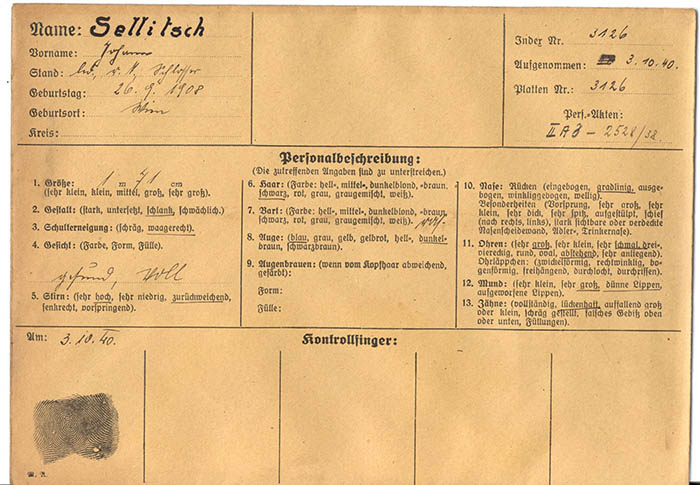 Name: Sellitsch
Vorname: Johann
Stand: led., r. k., Schlosser
Geburtstag: 26. 9. 1908
Geburtsort: Wien
Kreis:
Index Nr. 3126
Aufgenommen: 3. 10. 40.
Platten Nr.: 3126
Pers.-Akten:
II A B - 2528/38
Personalbeschreibung:
(Die zutreffenden Angaben sind zu unterstreichen.)
1. Größe: 1 m 71 cm
(sehr klein, klein, mittel, groß, sehr groß).
2. Gestalt: (stark, untersetzt, schlank, schwächlich).
3. Schulterneigung: (schräg, waagerecht).
4. Gesicht: (Farbe, Form, Fülle).
gesund, voll
5. Stirn: (sehr hoch, sehr niedrig, zurückweichend,
senkrecht, vorspringend).
6. Haar: (Farbe: hell-, mittel-, dunkelblond, -braun,
schwarz, rot, grau, graugemischt, weiß).
7. Bart: (Farbe: hell-, mittel-, dunkelblond, -braun,
schwarz, rot, grau, graugemischt, weiß).
8. Auge: (blau, grau, gelb, gelbrot, hell-, dunkel-
braun, schwarzbraun).
9. Augenbrauen: (wenn vom Kopfhaar abweichend,
gefärbt):
Form:
Fülle:
10. Nase: Rücken (eingebogen, gradlinig, ausge-
bogen, winkliggebogen, wellig).
Besonderheiten (Vorsprung, sehr groß, sehr
klein, sehr dick, sehr spitz, aufgestülpt, schief
(nach rechts, links), stark sichtbare oder verdeckte
Nasenscheidewand, Adler-, Trinkernase).
11. Ohren: (sehr groß, sehr klein, sehr schmal, drei-,
viereckig, rund, oval, abstehend, sehr anliegend).
Ohrläppchen: (zwickelförmig, rechtwinklig, bo-
genförmig, freihängend, durchlocht, durchrissen).
12. Mund: (sehr klein, sehr groß, dünne Lippen,
aufgeworfene Lippen).
13. Zähne: (vollständig, lückenhaft, auffallend groß
oder klein, schräg gestellt, falsches Gebiß oben
oder unten, Füllungen).
Am: 3. 10. 40.
Kontrollfinger: